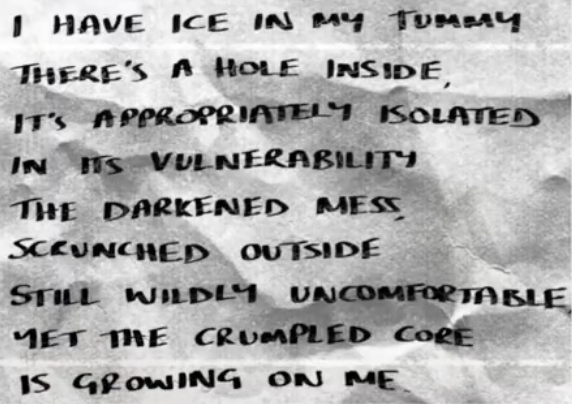 I HAVE ICE IN MY TUMMY
THERE'S A HOLE INSIDE,
IT'S APPROPRIATELY ISOLATED
IN ITS VULNERABILITY
THE DARKENED MESS,
SCRUNCHED OUTSIDE
STILL WILDLY UNCOMFORTABLE,
YET THE CRUMPLED CORE
IS GROWING ON ME.